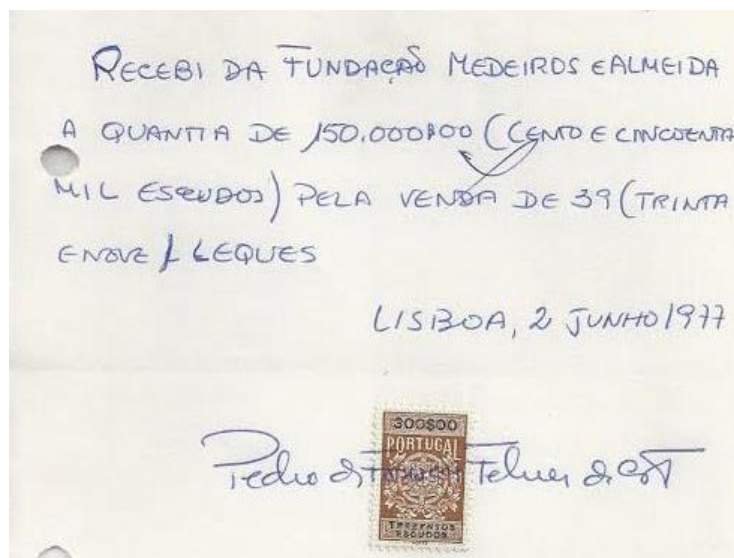 RECEBI DA FUNDAÇÃO MEDEIROS E ALMEIDA
A QUANTIA DE 150.000$00 (CENTO E CINCOENTA
MIL ESCUDOS) PELA VENDA DE 39 (TRINTA
E NOVE) LEQUES
LISBOA, 2 JUNHO 1977
300$00
PORTUGAL
Pedro de Telmer de
TREZENTOS
ESCUDOS